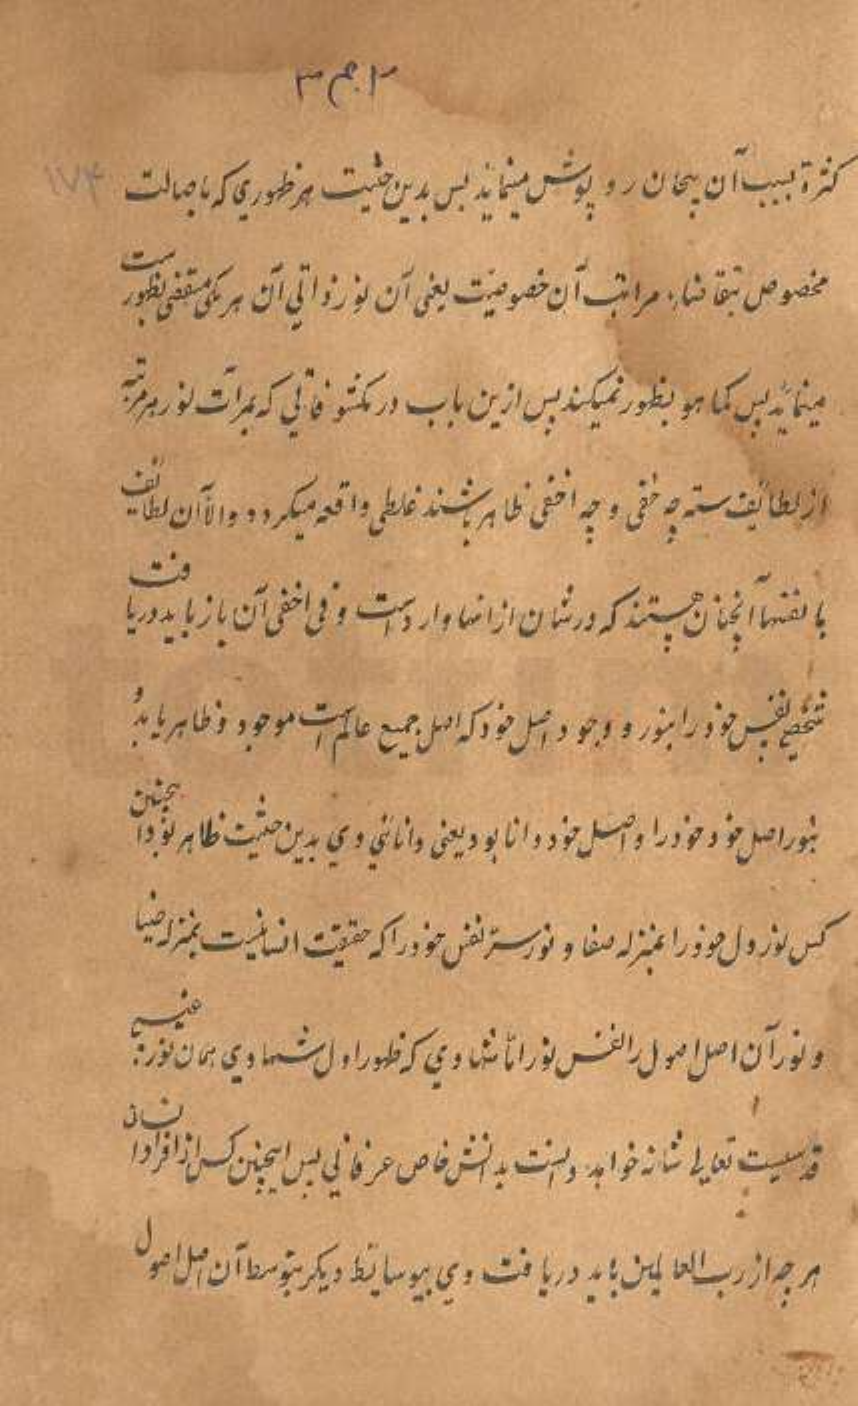 ۳۰۳
۱۷۴
کثرة بسبب آن پنهان رو پوش مینماید پس بدین حیثیت هر ظهوری که باصالت
مخصوص بتقاضاء مراتب آن خصوصیت یعنی آن نور ذاتی آن هر یکی مقتضی ظهور است
مینماید پس کما هو بظهور نمیکند پس ازین باب در مکشوفاتی که بمرآت نور هر مرتبه
از لطایف سته چه خفی و چه اخفی ظاهر باشند غلطی واقعه میگردد و الا آن لطایف
بانفسها آنچنان هستند که در شان از انها وارد است و فی اخفی آن باز باید دریافت
شخصی نفس خود را بنور و وجود اصل خود که اصل جمیع عالم است موجود و ظاهر یابد و
بنور اصل خود خود را و اصل خود دانا بود یعنی دانائی وی بدین حیثیت ظاهر بود همچنین
کس نور دل خود را بمنزله صفا و نور سر نفس خود را که حقیقت انسانیست بمنزله ضیا
و نور آن اصل اصول را نفس نور وی که ظهور اول وی همان نور غیب
تعالی شانه خواهد دانست بدانش خاص عرفانی پس اینچنین کس از افراد انسانی
هر چه از رب العالمین باید دریافت وی بیوسائط دیگر بتوسط آن اصل اصول